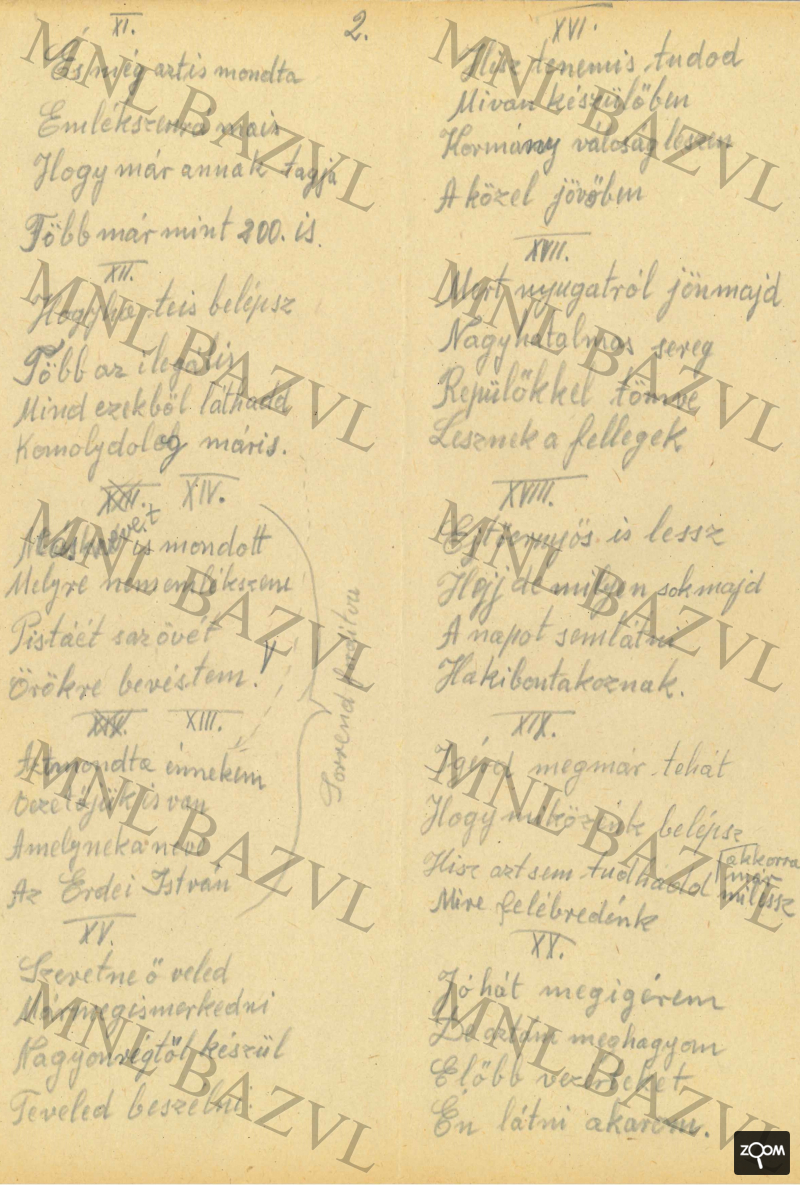 2.
XI.
És még aztis mondta
Emlékszemrá mais
Hogy már annak tagja
Több már mint 200. is.
XII.
Hogyha teis belépsz
Több az ilegális
Mind ezekből láthadd
Komolydolog máris.
XIII. XIV.
nevet is mondott
Melyre nem emlékszem
Pistáét s az övét
Örökre bevéstem.
XIV. XIII.
Aztmondta énnekem
Vezetőjük is van
Amelyneka neve
Az Erdei István
Sorrend fordítva
XV.
Szeretne ő veled
Már megismerkedni
Nagyon régtől készül
Teveled beszélni.
XVI.
Hisz tenemis tudod
Mivan készülőben
Kormány válcság leszen
A közel jövőben
XVII.
Mert nyugatról jönmajd
Nagyhatalmas sereg
Repülőkkel tömve
Lesznek a fellegek
XVIII.
Ejtőernyős is lessz
Hejj de milyen sokmajd
A napot semlátni
Hakibontakoznak.
XIX.
Igérd megmár tehát
Hogy miközénk belépsz
Hisz aztsem tudhadd akkorra már milessz
Mire felébredénk
XX.
Jó hát megigérem
De aztán meghagyom
Előbb vezérteket
Én látni akarom.
MNL BAZVL
MNL BAZVL
MNL BAZVL
MNL BAZVL
MNL BAZVL
MNL BAZVL
MNL BAZVL
MNL BAZVL
MNL BAZVL
MNL BAZVL
ZOOM